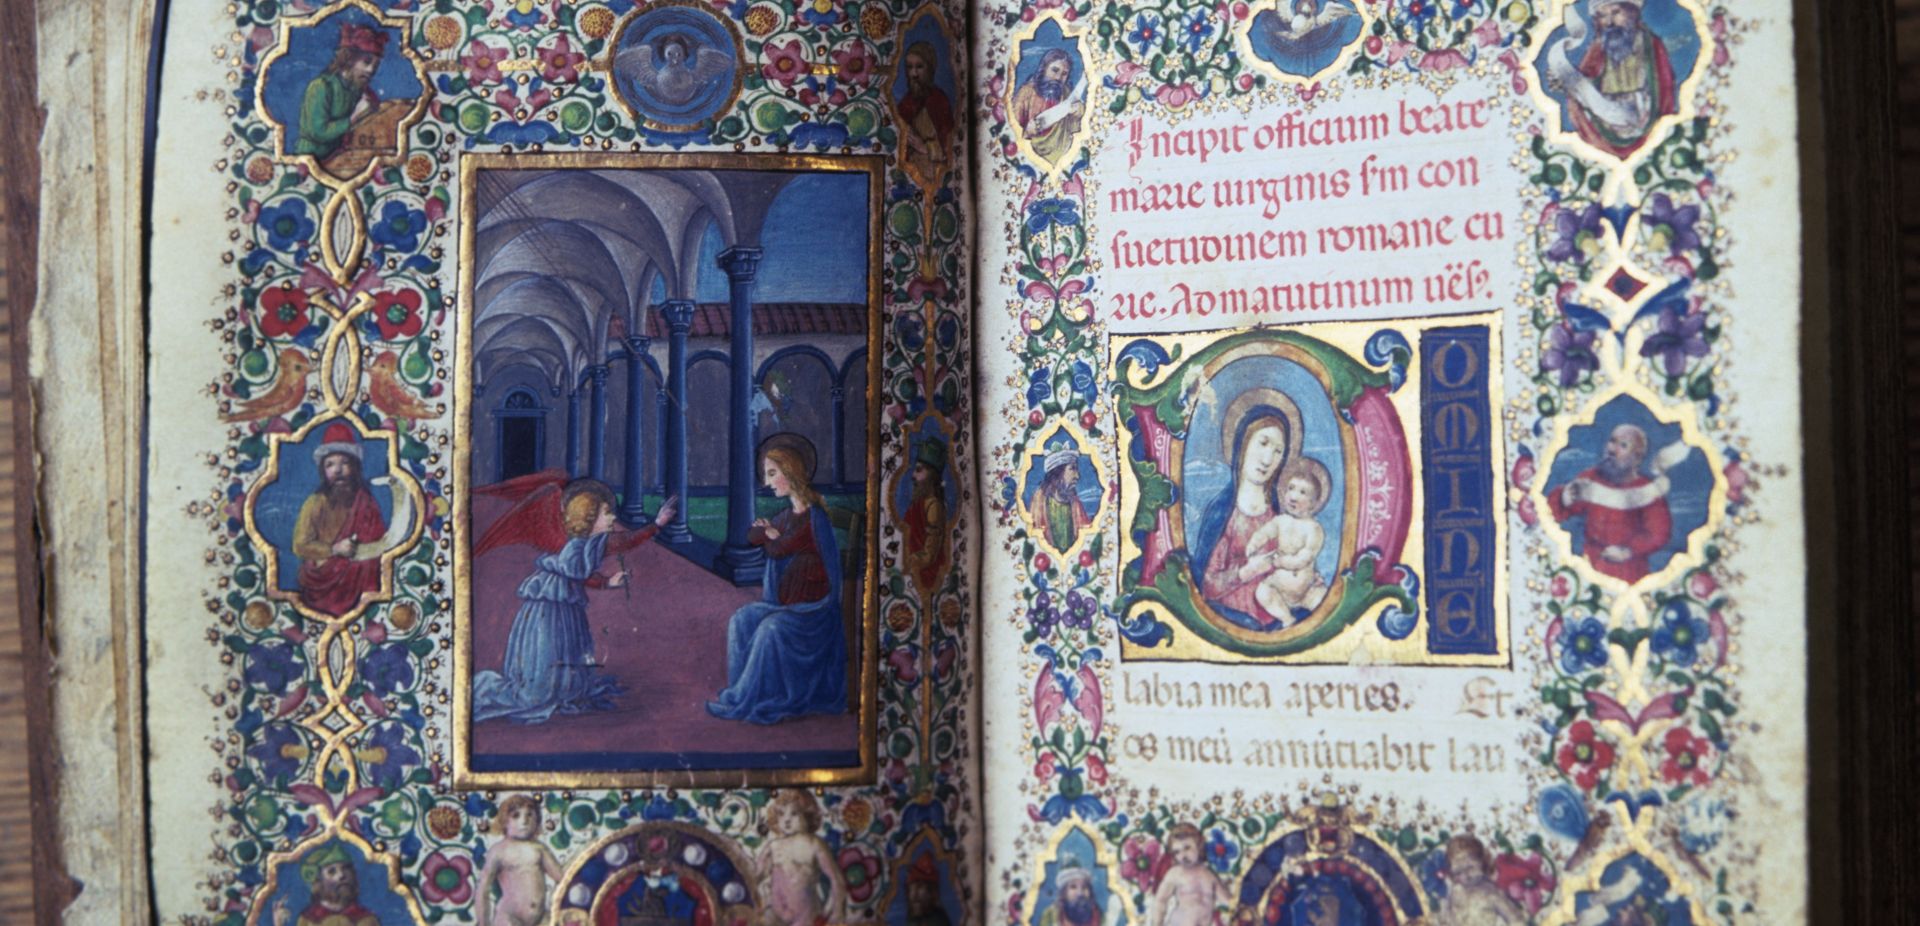 Incipit officium beate
marie uirginis s'm con
suetudinem romane cu
rie. Ad matutinum uës.
DOMINE
labia mea aperies. Et
os meū annūtiabit lau